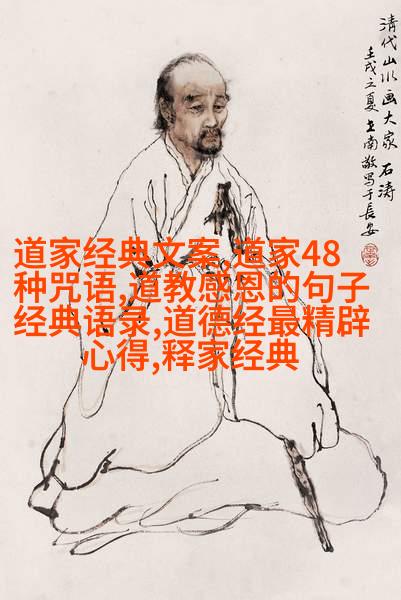 清代山水画大家 石涛
壬戌之夏 南敬写于長安
道家经典文案,道家48
种咒语,道教感恩的句子
经典语录,道德经最精辟
心得,释家经典